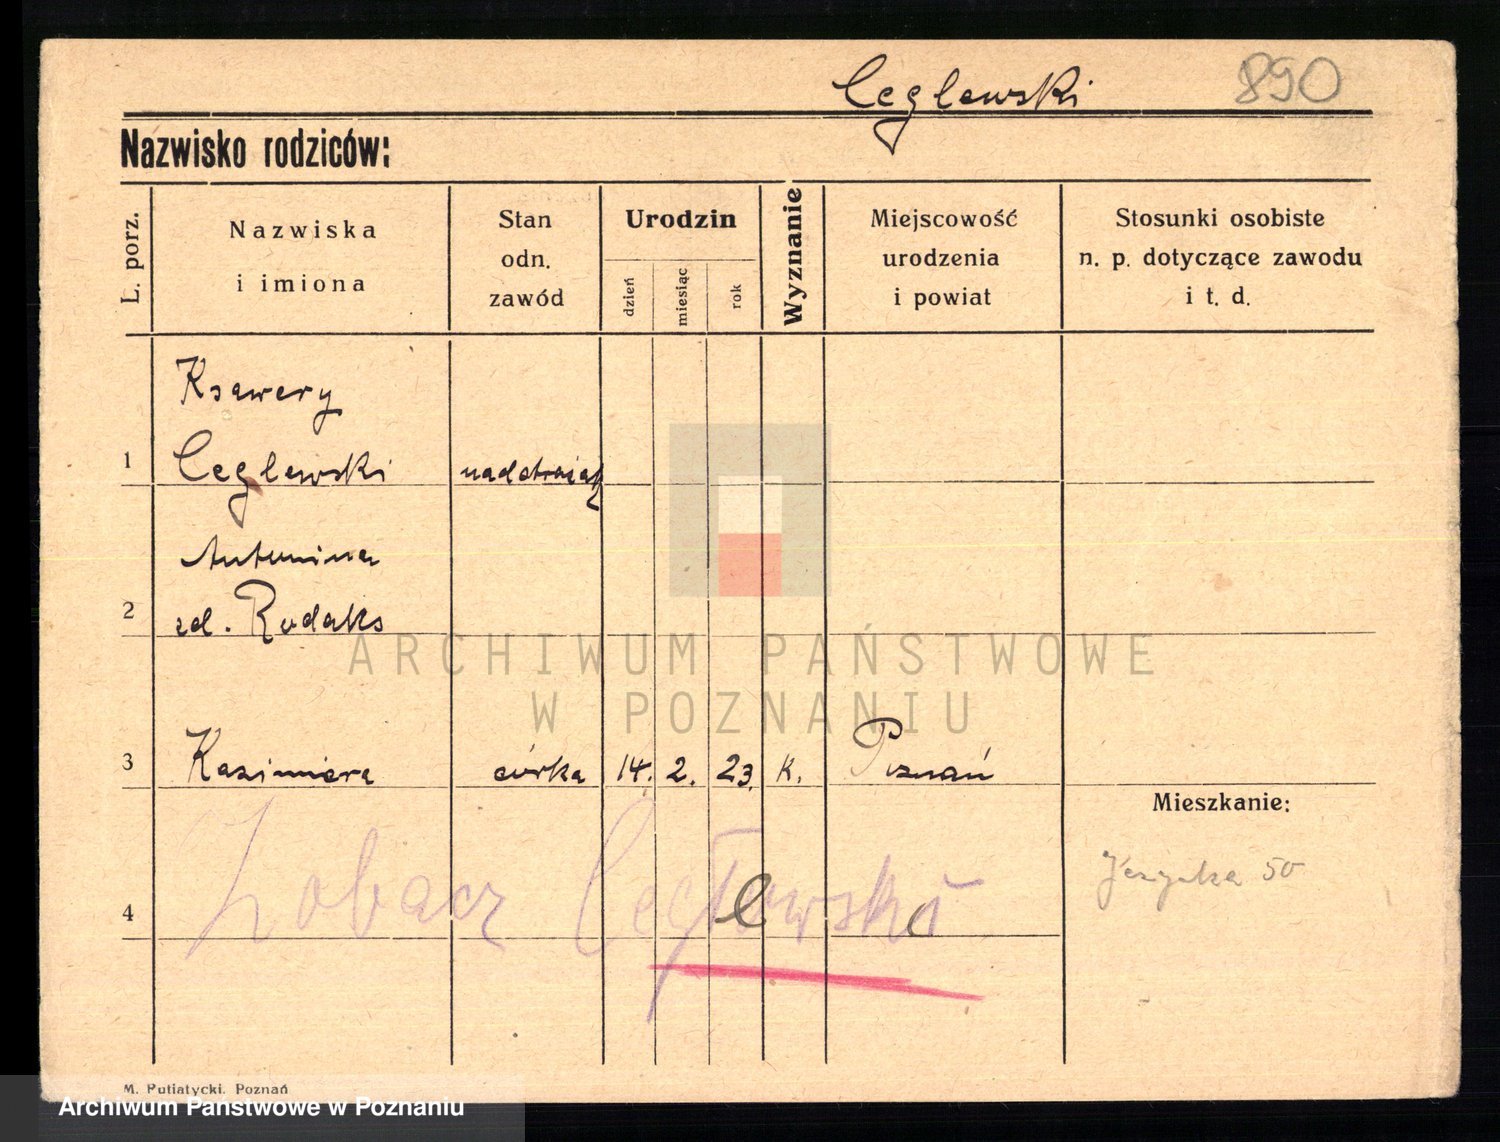 Ceglewski 890
Nazwisko rodziców:
L. porz.
Nazwiska
i imiona
Stan
odn.
zawód
Urodzin
dzień
miesiąc
rok
Wyznanie
Miejscowość
urodzenia
i powiat
Stosunki osobiste
n. p. dotyczące zawodu
i t. d.
Ksawery
1 Ceglewski
Antonina
2 zd. Rudaks
3 Kazimiera córka 14. 2. 23. K. Poznań
Mieszkanie:
50
4 Zobacz
M. Putiatycki. Poznań
ARCHIWUM PAŃSTWOWE
W POZNANIU
Archiwum Państwowe w Poznaniu